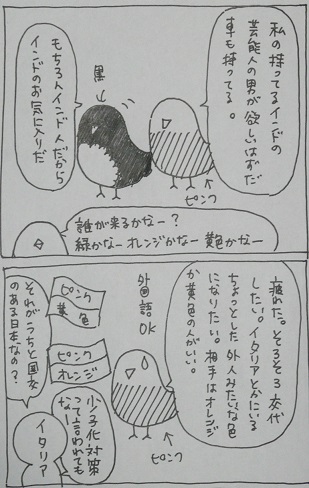 私の持ってるインドの
芸能人の男が欲しいはずだ
車も持ってる。
ピンク
黒
もちろんインド人だから
インドのお気に入りだ
誰が来るかなー？
緑かなーオレンジかなー黄色かなー
疲れた。そろそろ交代
したい。イタリアとかにいる
ちょっとした外人みたいな色
になりたい。相手はオレンジ
か黄色の人がいい。
ピンク
外国語
OK
ピンク
黄色
ピンク
オレンジ
少子化対策
って言われても
なー
イタリア
それがうちと国交
のある日本なの？